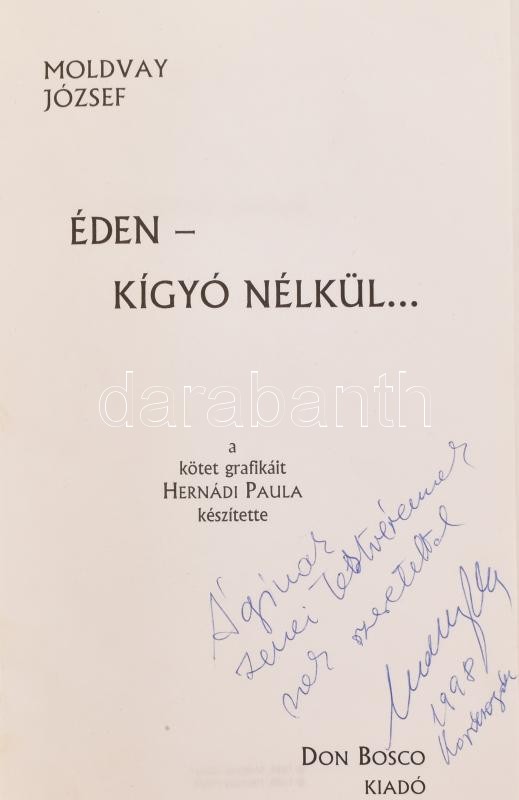 MOLDVAY
JÓZSEF
ÉDEN –
KÍGYÓ NÉLKÜL...
darabanth
a
kötet grafikáit
HERNÁDI PAULA
készítette
Áginak
zenei testvéremnek
szeretettel
1998
DON BOSCO
KIADÓ